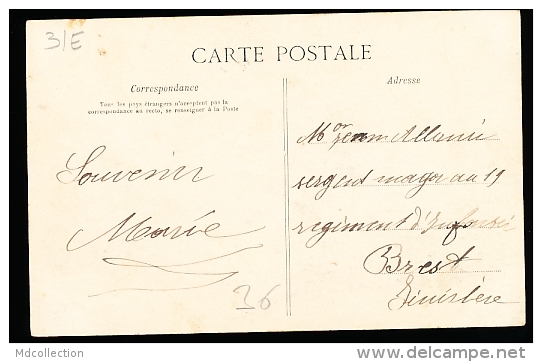 3/E
CARTE POSTALE
Correspondance
Tous les pays étrangers n'acceptent pas la
correspondance au recto, se renseigner à la Poste
Adresse
Souvenir
Marie
26
Mor Jean
sergent major au 19
regiment d'Infanterie
Brest
Finistère
Mdcollection
http://www.delcampe.net